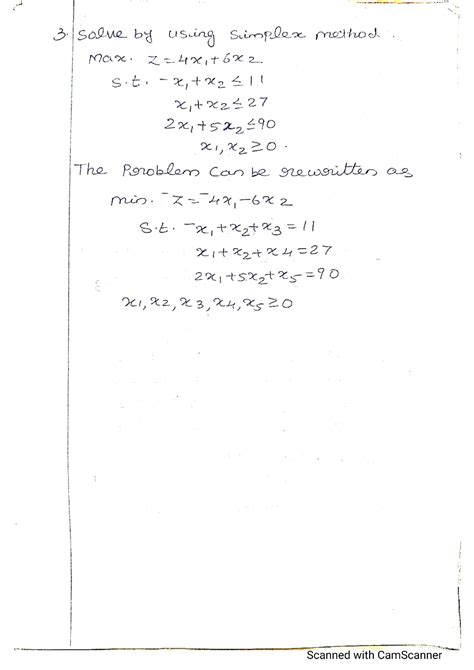 3. Solve by using simplex method.
Max. Z = 4x₁+6x₂
S.t. -x₁+x₂ ≤ 11
x₁+x₂ ≤ 27
2x₁+5x₂ ≤ 90
x₁, x₂ ≥ 0.
The Problem can be rewritten as
min. -Z = -4x₁-6x₂
S.t. -x₁+x₂+x₃ = 11
x₁+x₂+x₄ = 27
2x₁+5x₂+x₅ = 90
x₁, x₂, x₃, x₄, x₅ ≥ 0
Scanned with CamScanner